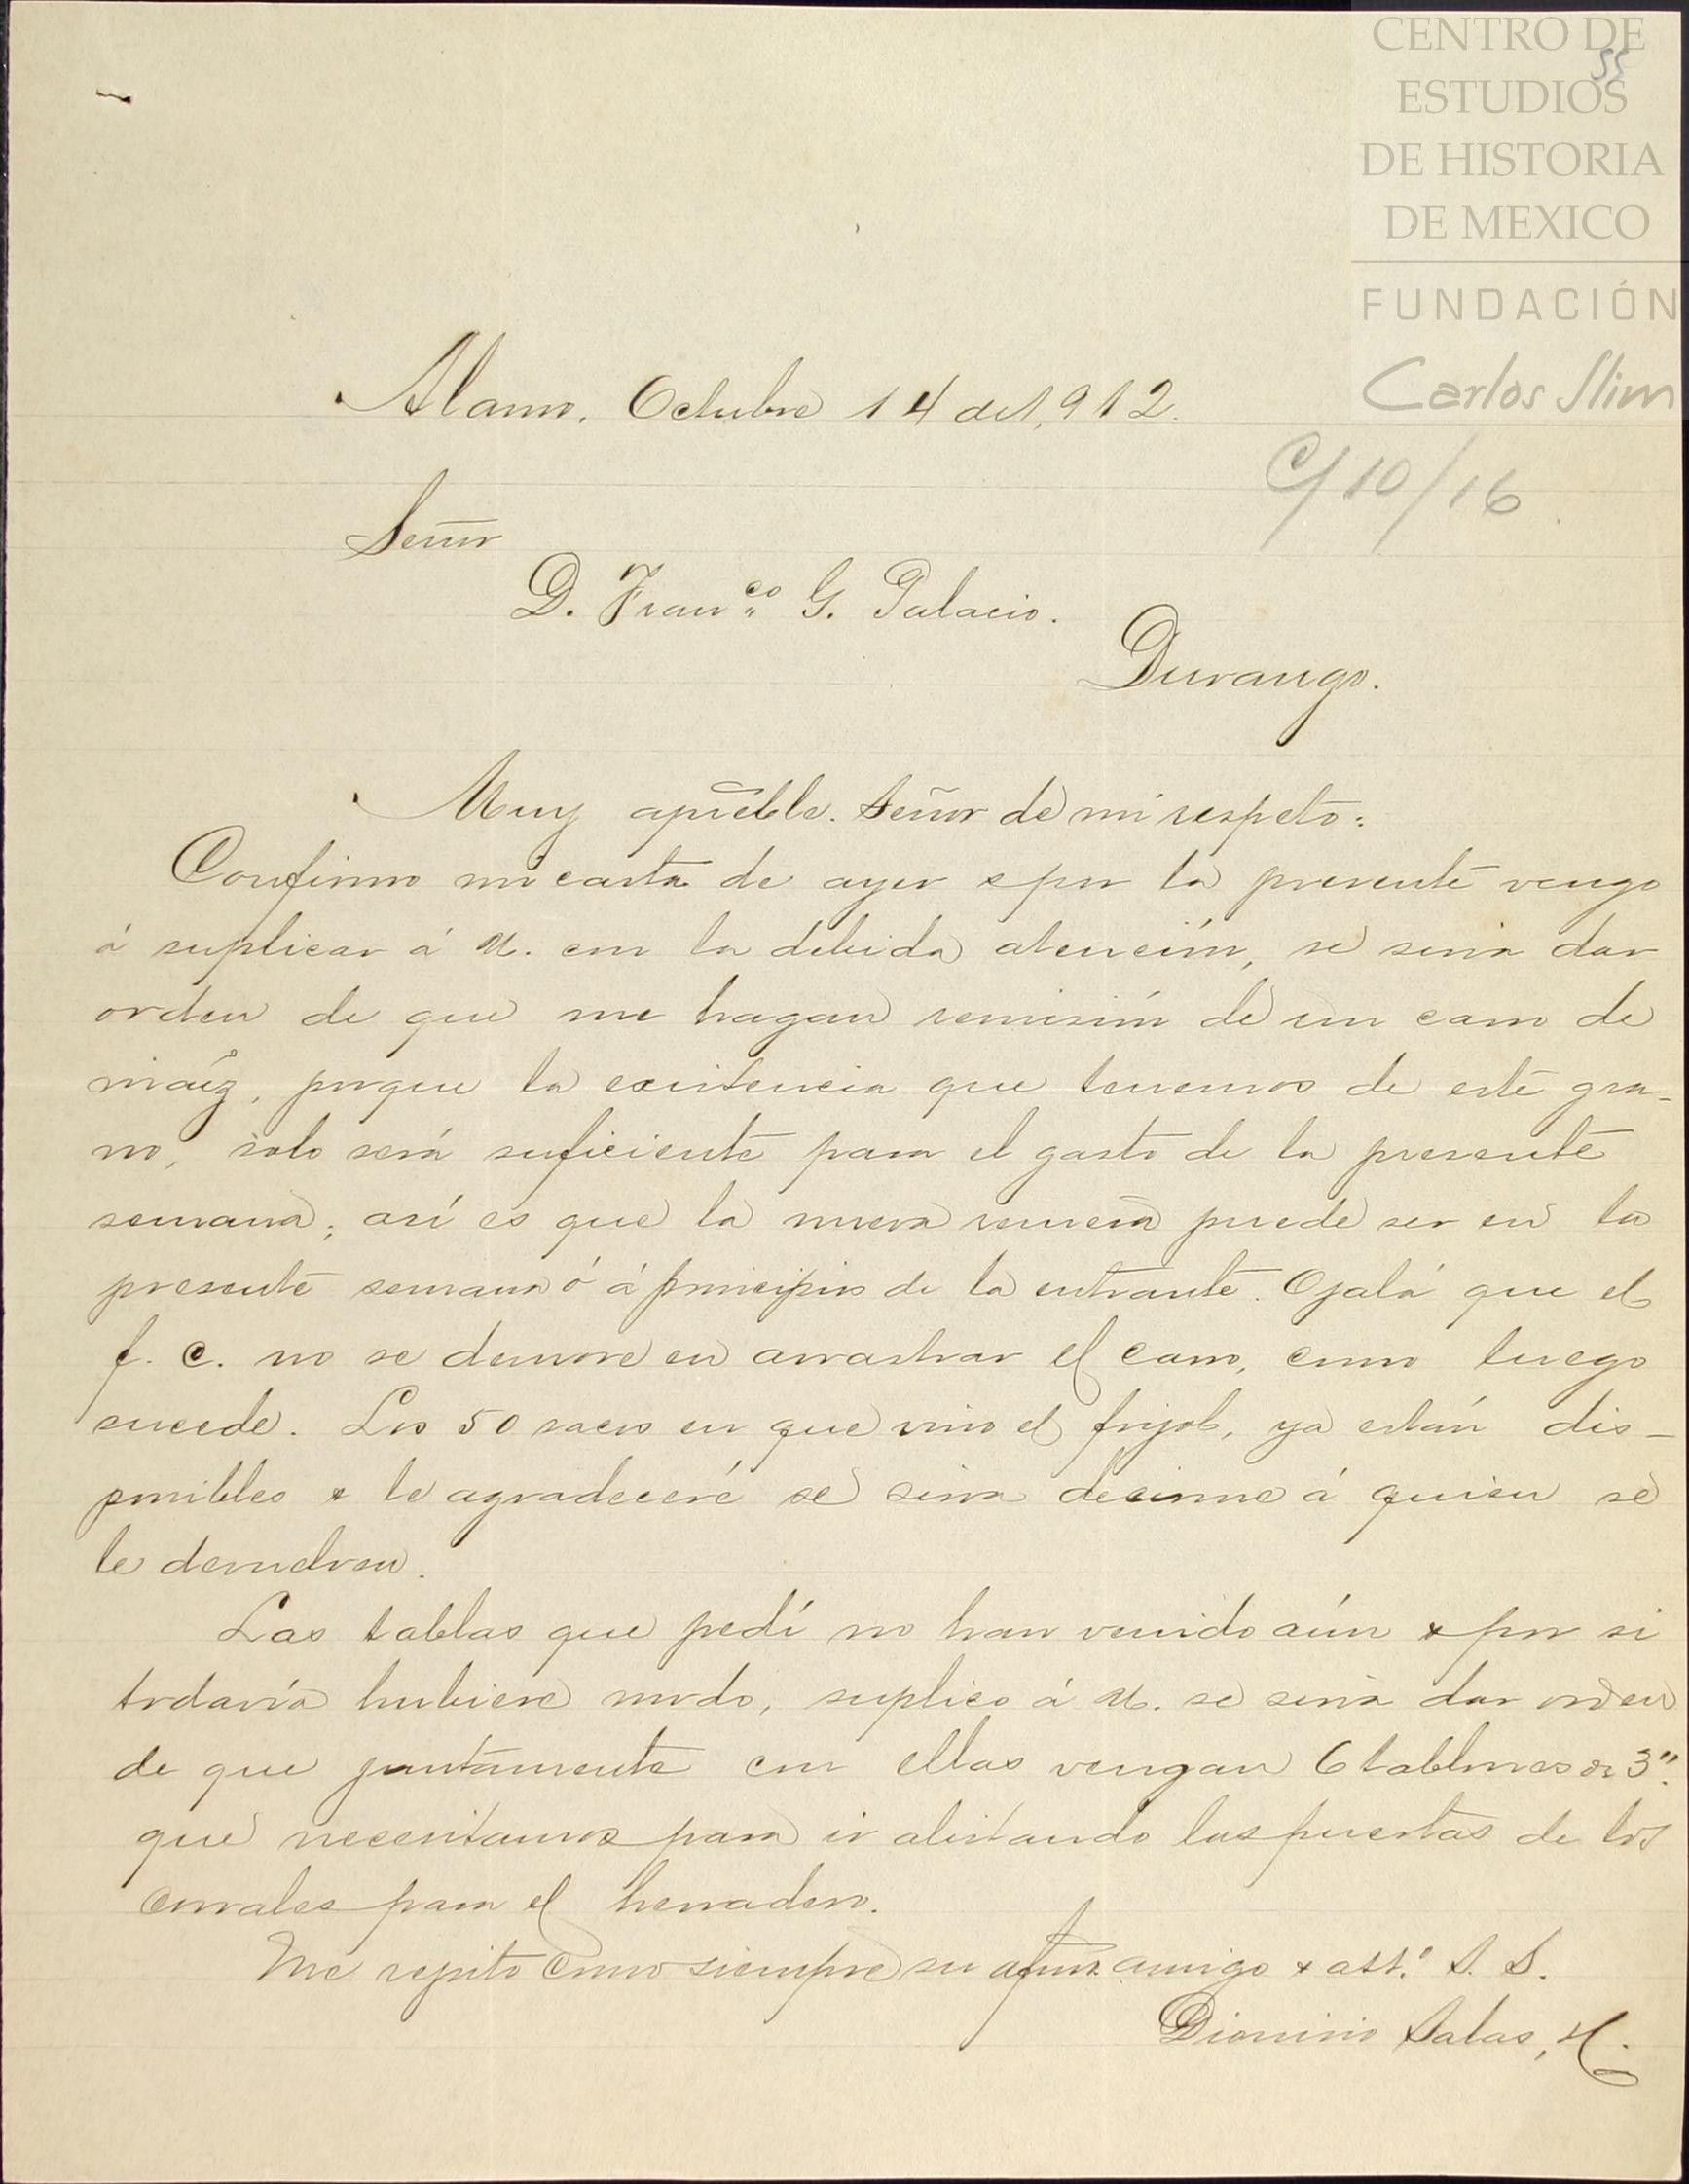 CENTRO DE
55
ESTUDIOS
DE HISTORIA
DE MEXICO
FUNDACIÓN
Carlos Slim
Alamo. Octubre 14 de 1,912.
C/10/16
Señor
D. Franco. G. Palacio.
Durango.
Muy apreble. Señor de mi respeto:
Confirmo mi carta de ayer & por la presente vengo
á suplicar á U. con la debida atención, se sirva dar
orden de que me hagan remisión de un carro de
maíz, porque la existencia que tenemos de este gra-
no, solo será suficiente para el gasto de la presente
semana; así es que la nueva remesa puede ser en la
presente semana ó á principios de la entrante. Ojalá que el
f. c. no se demore en arrastrar el carro, como luego
sucede. Los 50 sacos en que vino el frijol, ya están dis-
ponibles & le agradeceré se sirva decirme á quien se
le devuelven.
Las tablas que pedí no han venido aún & por si
todavía hubiere modo, suplico á U. se sirva dar orden
de que juntamente con ellas vengan 6 tablones de 3".
que necesitamos para ir alistando las puertas de los
corrales para el herradero.
Me repito como siempre su afmo. amigo & att.o S. S.
Dionisio Salas, H.